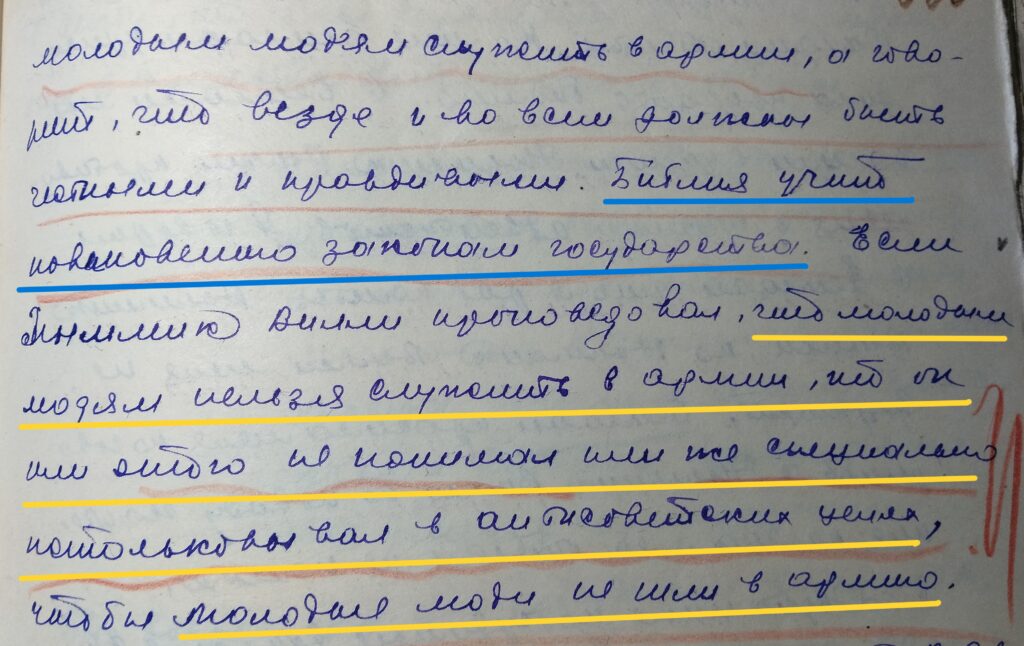 молодым людям служить в армии, а гово-
рит, что везде и во всем должны быть
честными и правдивыми. Библия учит
повиновению законам государства. Если
Вилли проповедовал, что молодым
людям нельзя служить в армии, то он
или этого не понимал или же специально
истолковывал в антисоветских целях,
чтобы молодые люди не шли в армию.